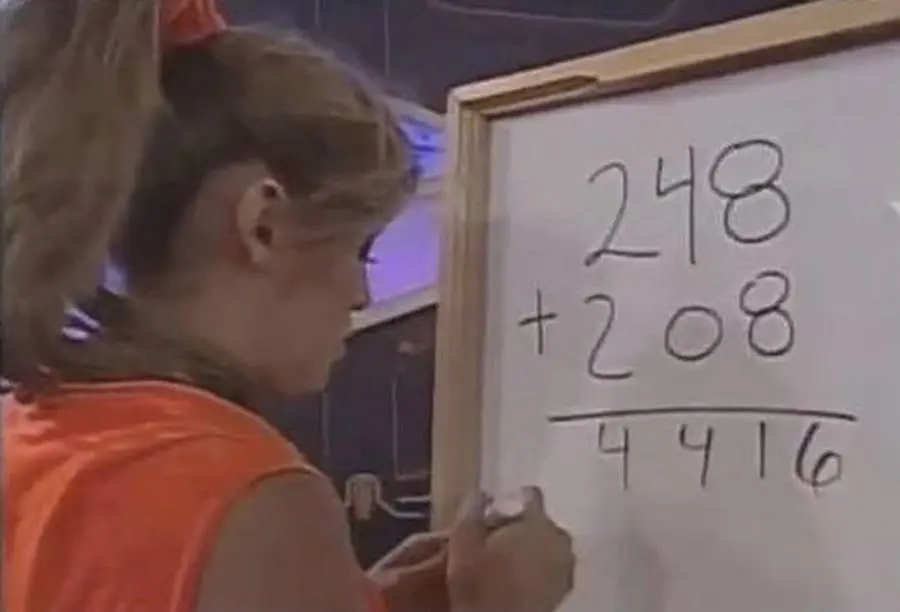 248
+ 208
4416